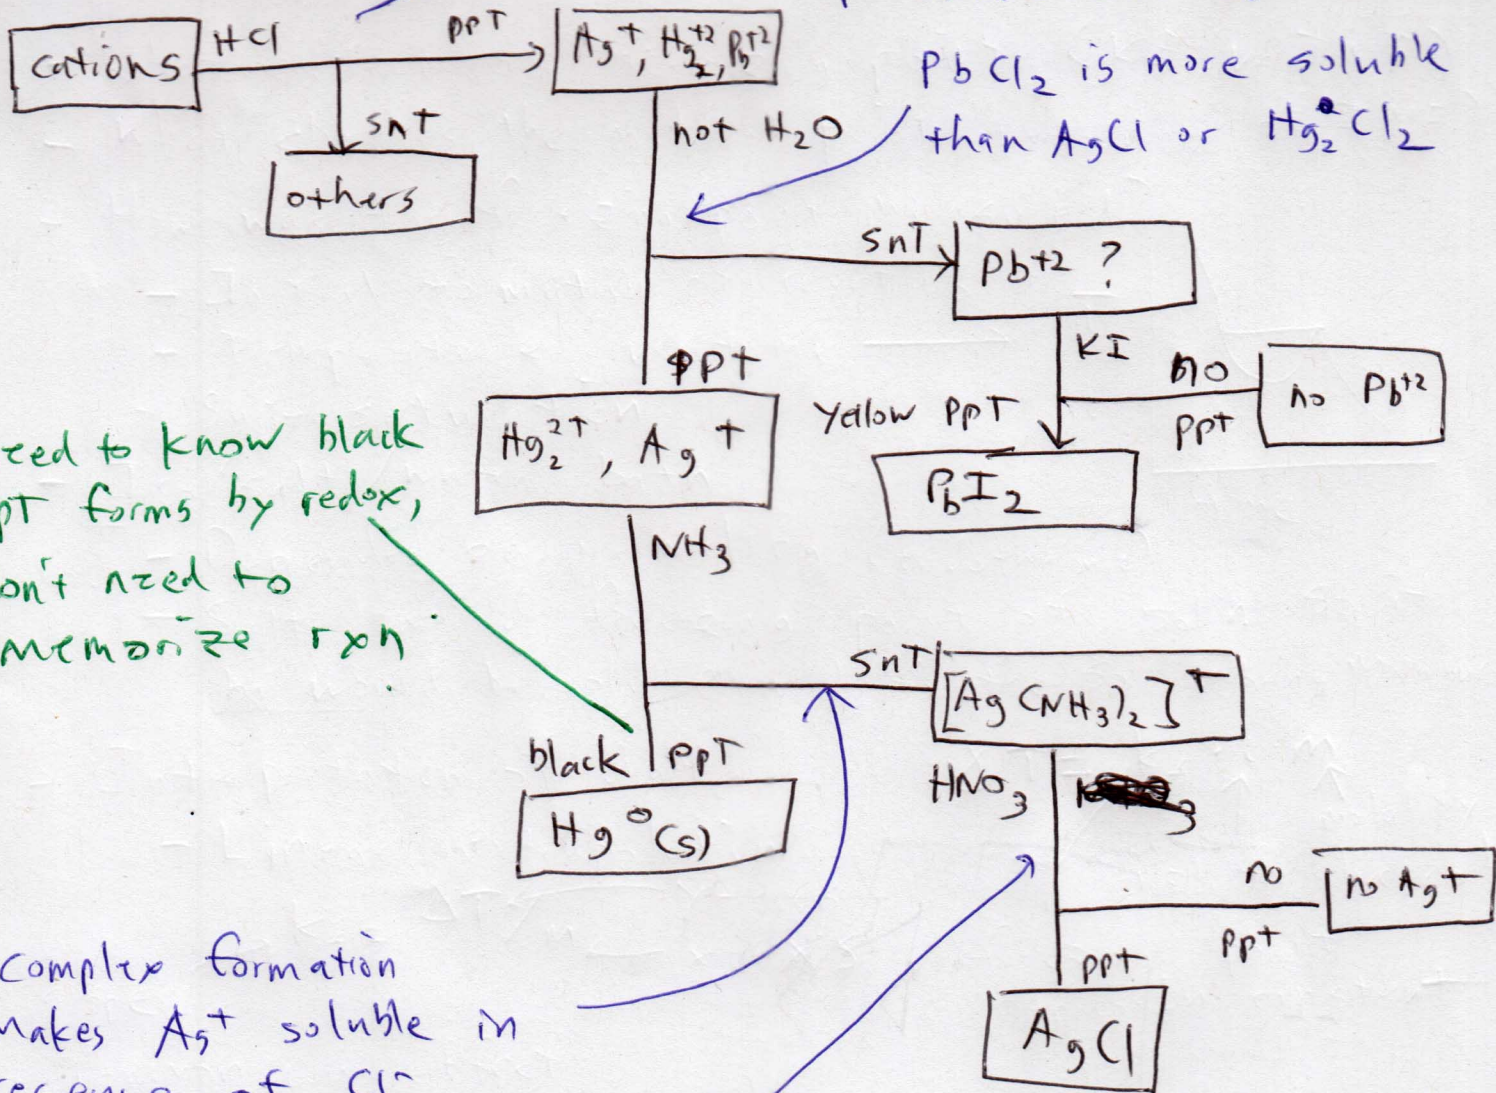 cations
HCl
ppT
Ag+, Hg2+2, Pb+2
snT
others
not H2O
PbCl2 is more soluble
than AgCl or Hg2Cl2
snT
Pb+2 ?
KI
no
ppt
no Pb+2
yellow ppT
PbI2
ppt
Hg2 2+, Ag+
eed to know black
pT forms by redox,
on't need to
memorize rxn
NH3
snT
[Ag(NH3)2]+
black ppT
Hg°(s)
HNO3
no
ppt
no Ag+
ppt
AgCl
complex formation
makes Ag+ soluble in
of Cl-